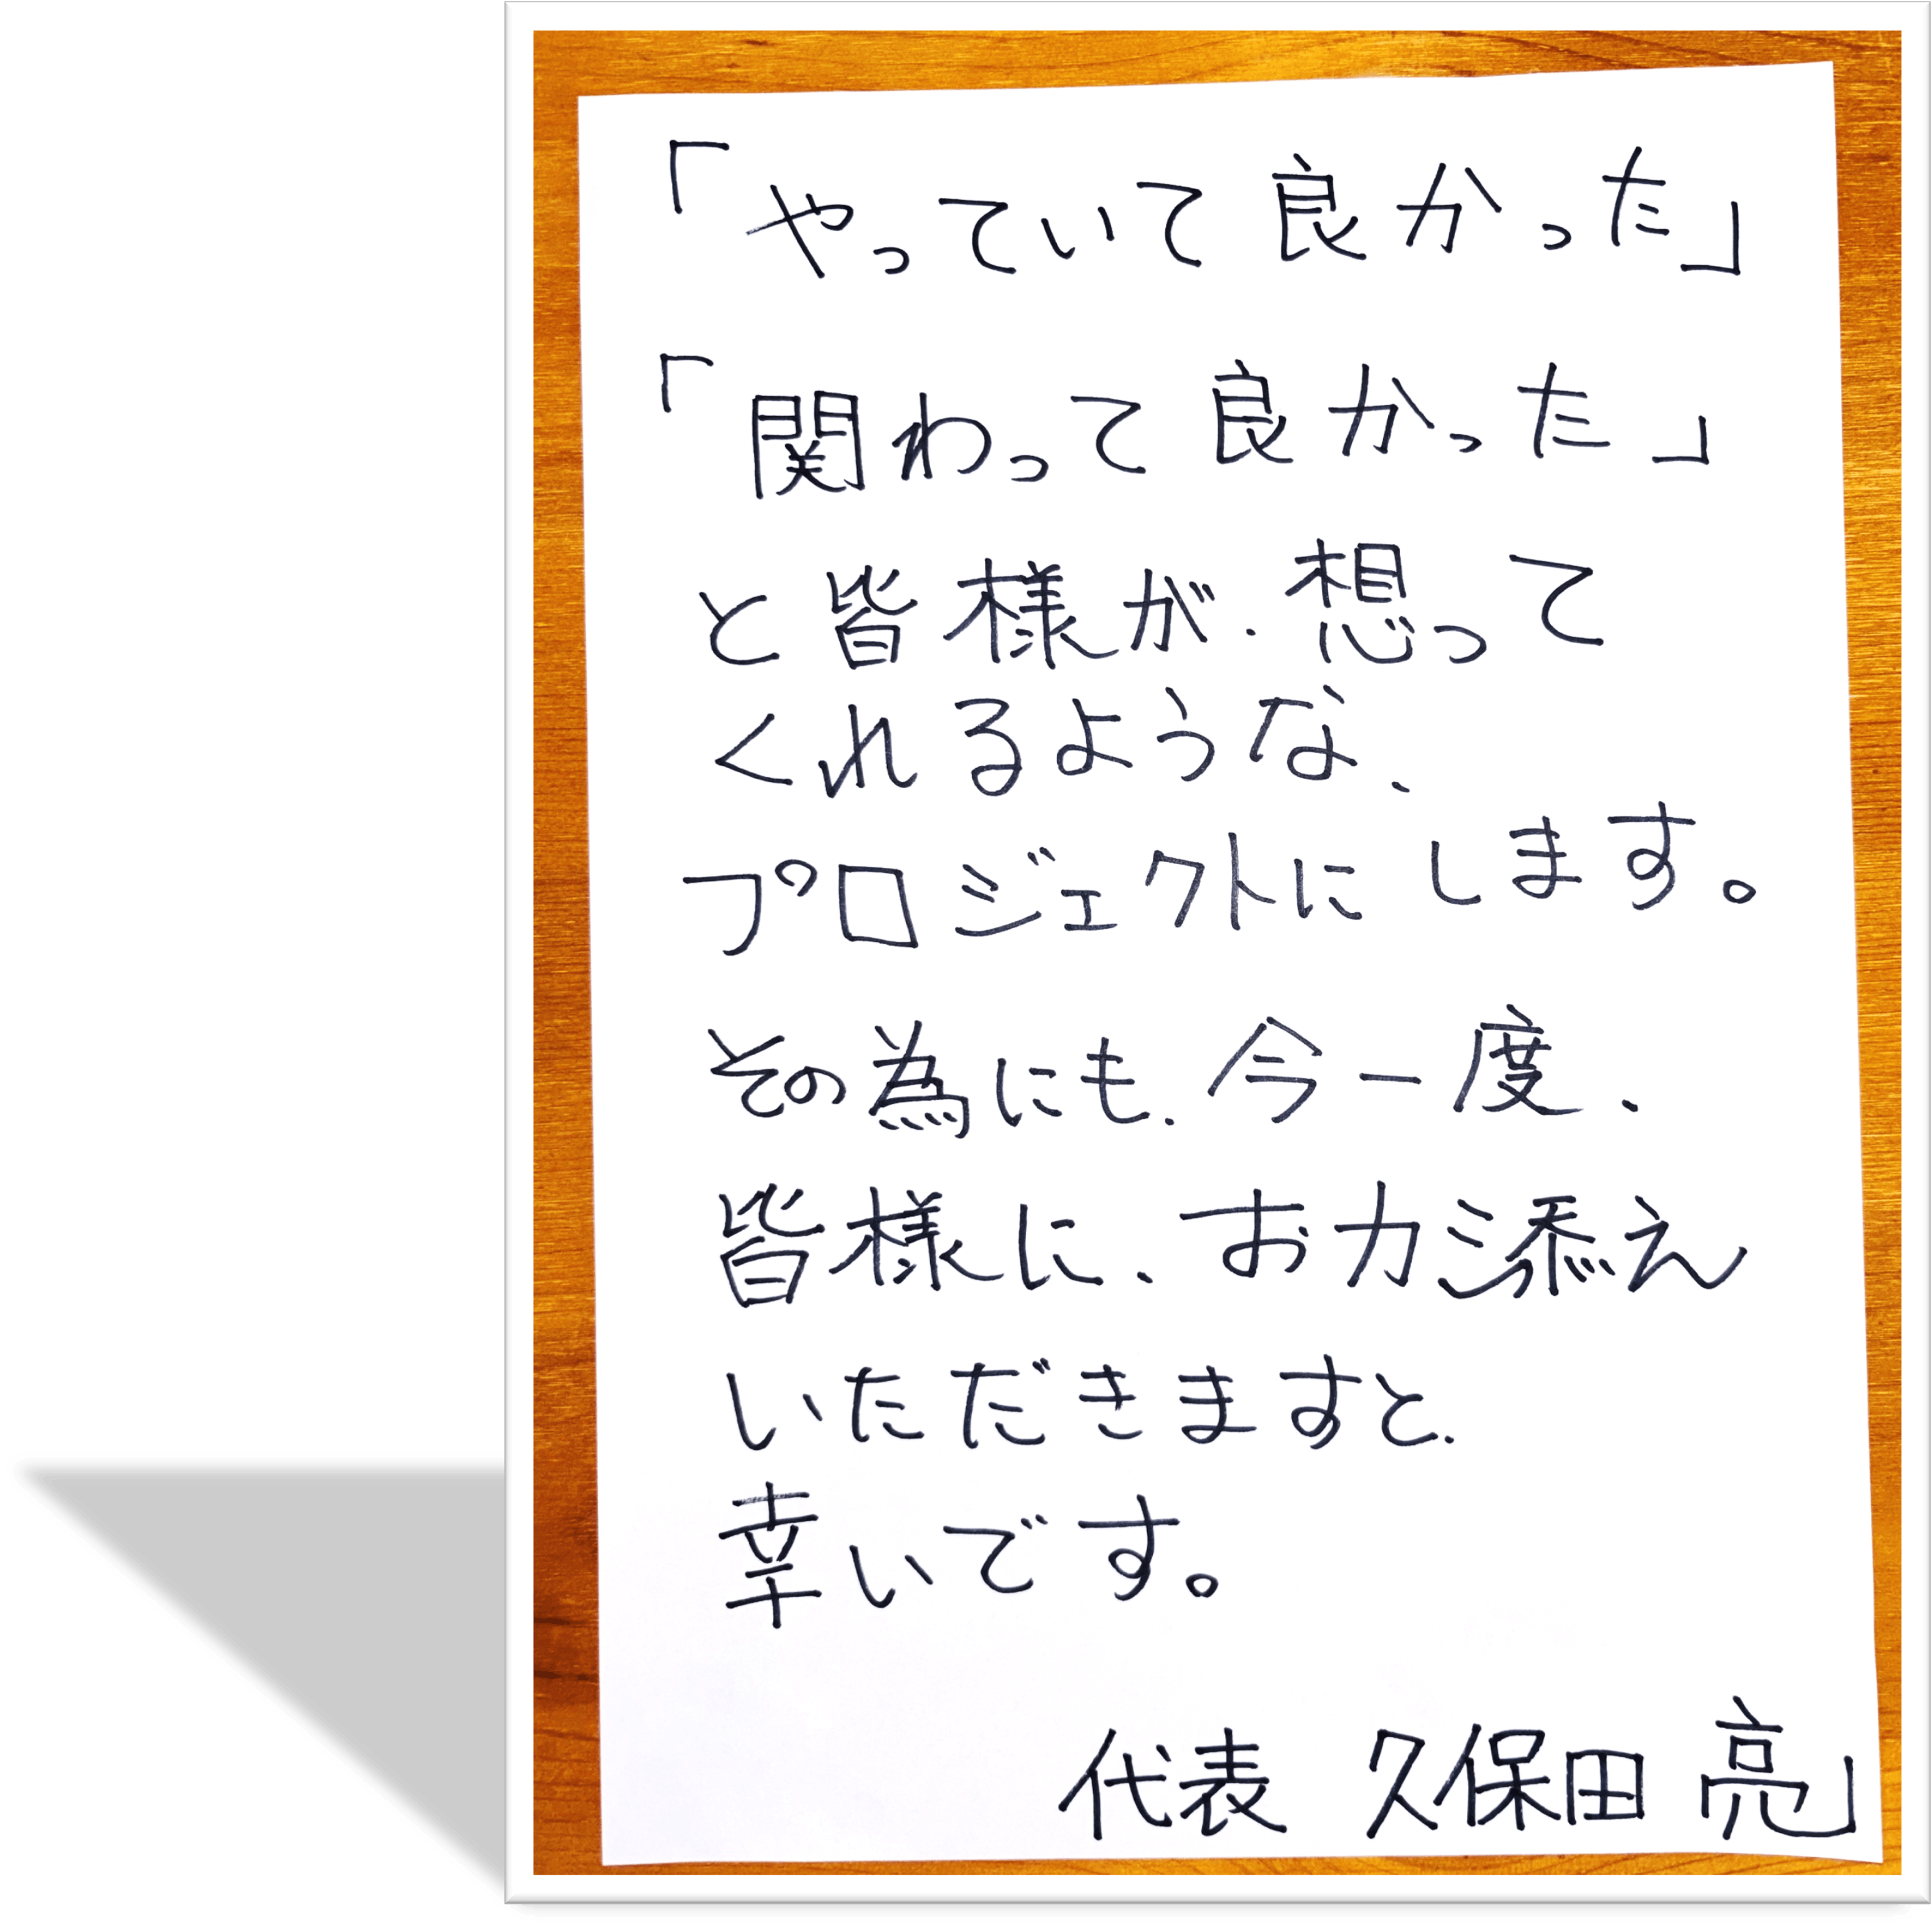 「やっていて良かった」
「関わって良かった」
と皆様が、想って
くれるような、
プロジェクトにします。
その為にも、今一度、
皆様に、お力添え
いただきますと、
幸いです。
代表 久保田 亮